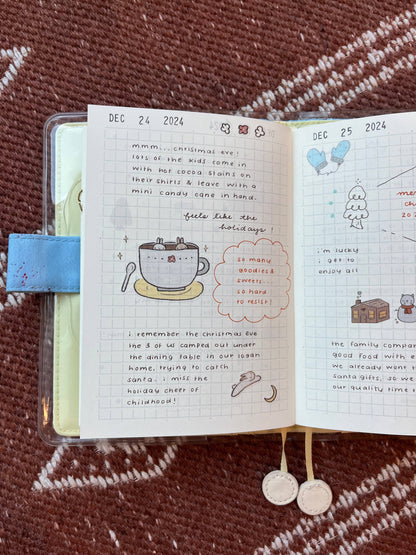 DEC 24 2024
mmm... christmas eve!
lots of the kids come in
with hot cocoa stains on
their shirts & leave with a
mini candy cane in hand.
feels like the
holidays!
so many
goodies &
sweets...
so hard
to resist!
i remember the christmas eve
the 3 of us camped out under
the dining table in our logan
home, trying to catch
santa. i miss the
holiday cheer of
childhood!
DEC 25 2024
20
i'm lucky
i get to
enjoy all
the family compan
good food with e
we already went t
santa gifts, so we
our quality time t